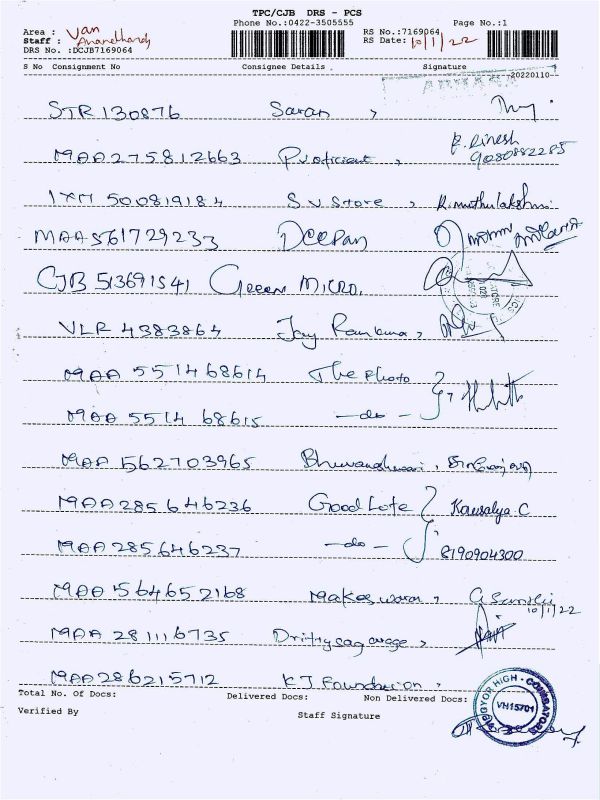 TPC/CJB DRS - PCS
Phone No.:0422-3505555
Page No.:1
Area : Van
Staff : Ananthandy
DRS No. :DCJB7169064
RS No.:7169064
RS Date: 10/1/22
S No Consignment No Consignee Details Signature
20220110
STR 130876 Saran ,
MAA 275812663 Proficient , P. Dinesh
9080882285
IXM 500819184 S.V Store , R.muthulakshmi
MAA 561729233 Deepan
CJB 513691541 Green Micro.
VLR 4383864 Jay Ramkumar ,
MAA 551468614 The Photo
MAA 5514 68615 - do -
MAA 562703965 Bhuvaneshwari ,
MAA 285646236 Good Lote Kausalya.C
MAA 285646237 - do - 8190904300
MAA 564652168 Makeswaran ,
10/1/22
MAA 281116735
MAA 286215712 KJ Foundation ,
Total No. Of Docs: Delivered Docs: Non Delivered Docs:
Verified By Staff Signature
VN15701